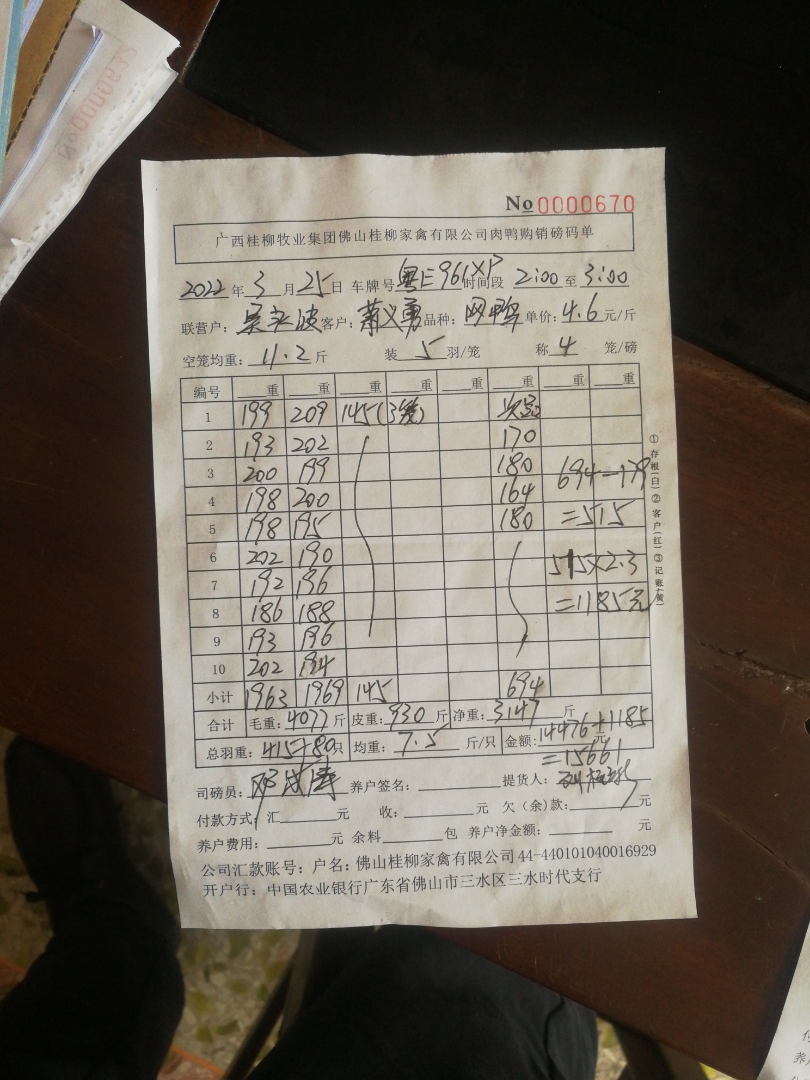 No 0000622
No 0000670
广西桂柳牧业集团佛山桂柳家禽有限公司肉鸭购销磅码单
2022 年 3 月 25 日 车牌号 粤E 961XP 时间段 2:00 至 3:00
联营户: 客户: 萧义勇 品种: 单价: 4.6 元/斤
空笼均重: 11.2 斤 装 5 羽/笼 称 4 笼/磅
编号 重 重 重 重 重 重 重 重
1 199 209 145(3笼) 次品
2 193 202 170
3 200 199 180 694-179
4 198 200 164
5 198 195 180 =515
6 202 190 515×2.3
7 192 196
8 186 188 =1185元
9 193 196
10 202 194
小计 1963 1969 145 694
合计 毛重: 4077 斤 皮重: 930 斤 净重: 3147 斤
总羽重: 415+80只 均重: 7.5 斤/只 金额: 14476+1185 元
=15661
司磅员: 养户签名: 提货人:
付款方式: 汇 元 收: 元 欠(余)款: 元
养户费用: 元 余料 包 养户净金额: 元
公司汇款账号: 户名: 佛山桂柳家禽有限公司 44-440101040016929
开户行: 中国农业银行广东省佛山市三水区三水时代支行
①存根(白)②客户(红)③记账(黄)